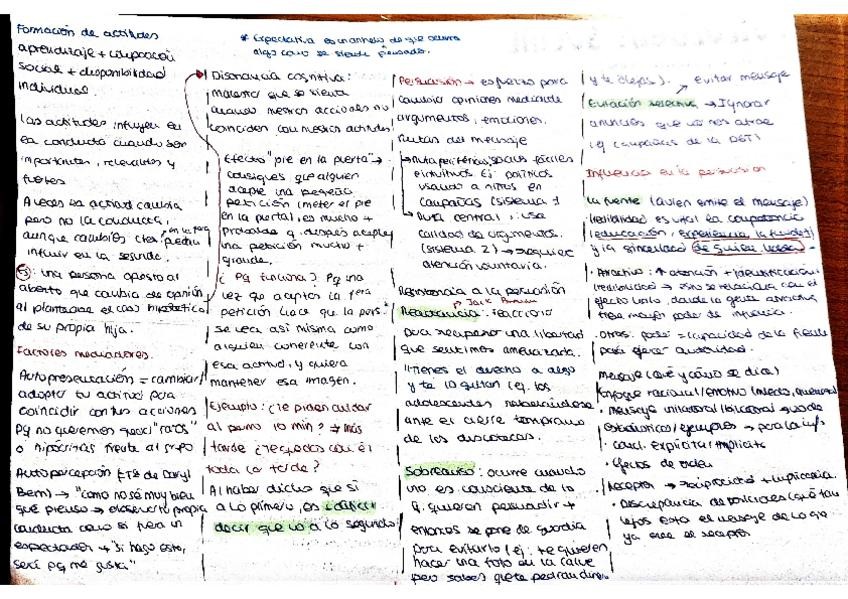 Formación de actitudes
aprendizaje + comparación
social + disponibilidad
individual.
Las actitudes influyen en
la conducta cuando son
importantes, relevantes y
fuertes
A veces la actitud cambia
pero no la conducta,
aunque cambies en la 1era
influir en la segunda.
Ej: una persona opuesta al
aborto que cambia de opinión
al plantearse el caso hipotético
de su propia hija.
Factores mediadores.
Autopresentación = cambiar/
adoptar tu actitud para
coincidir con tus acciones
Pq no queremos quedar "raros"
o hipócritas frente al grupo
Autopercepción (Tª de Daryl
Bem) → "como no sé muy bien
qué pienso → observo tu propia
conducta como si fuera un
espectador → "si hago esto,
será pq me gusta"
* Expectativa es manera de que ocurra
algo como se siente pensado.
Disonancia cognitiva:
malestar que se siente
cuando nuestras acciones no
coinciden con nuestras actitudes
Efecto "pie en la puerta" →
consigues que alguien
acepte una pequeña
petición (meter el pie
en la puerta), es mucho +
probable q después acepte
una petición mucho +
grande.
¿Pq funciona? Pq una
vez que aceptas la 1era
petición hace que la pers.
se vea así misma como
alguien coherente con
esa actitud, y quiera
mantener esa imagen.
Ejemplo: ¿Te piden cuidar
al perro 10 min? → más
tarde ¿Te quedas con él
toda la tarde?
Al haber dicho que sí
a lo primero, es difícil
decir que no a lo segundo
Persuasión → esfuerzo para
cambiar opiniones mediante
argumentos, emociones.
Rutas del mensaje
Ruta periférica: señales fáciles
Ej: políticos
usando a niños en
campañas (sistema 1)
Ruta central: usa
calidad de argumentos.
(sistema 2) → requiere
atención voluntaria.
Resistencia a la persuasión
Jack Brehm
Reactancia: reacciono
para recuperar una libertad
que sentimos amenazada.
"Tienes el derecho a algo
y te lo quitan (ej. los
adolescentes rebelándose
ante el cierre temprano
de las discotecas.
Sobreaviso: ocurre cuando
uno es consciente de lo
q quieren persuadir +
entonces se pone de guardia
para evitarlo (ej: te quieren
hacer una foto en la calle
pero sabes que te pedirán dinero
y te alejas).
evitar mensaje
Evitación selectiva → Ignorar
anuncios que no nos atrae
ej campañas de la DGT)
Influencia en la persuasión
La fuente (quien emite el mensaje)
Credibilidad es vital la competencia
(educación, experiencia, la fluidez)
y la sinceridad de quien habla -
• Atractivo: ↑ atención + identificación/
credibilidad → esto se relaciona con el
efecto halo, donde la gente atractiva
tiene mayor poder de influencia.
• Otros: poder = capacidad de la fuente
para ejercer autoridad.
Mensaje (qué y cómo se dice)
Enfoque racional/emotivo (miedo,
• Mensaje unilateral/bilateral
Estadísticas/ejemplos →
• concl. explícita/implícita
• Efectos de orden
Receptor → + implicación.
• Discrepancia de posiciones (cómo tan
lejos está el mensaje de lo que
ya cree el receptor